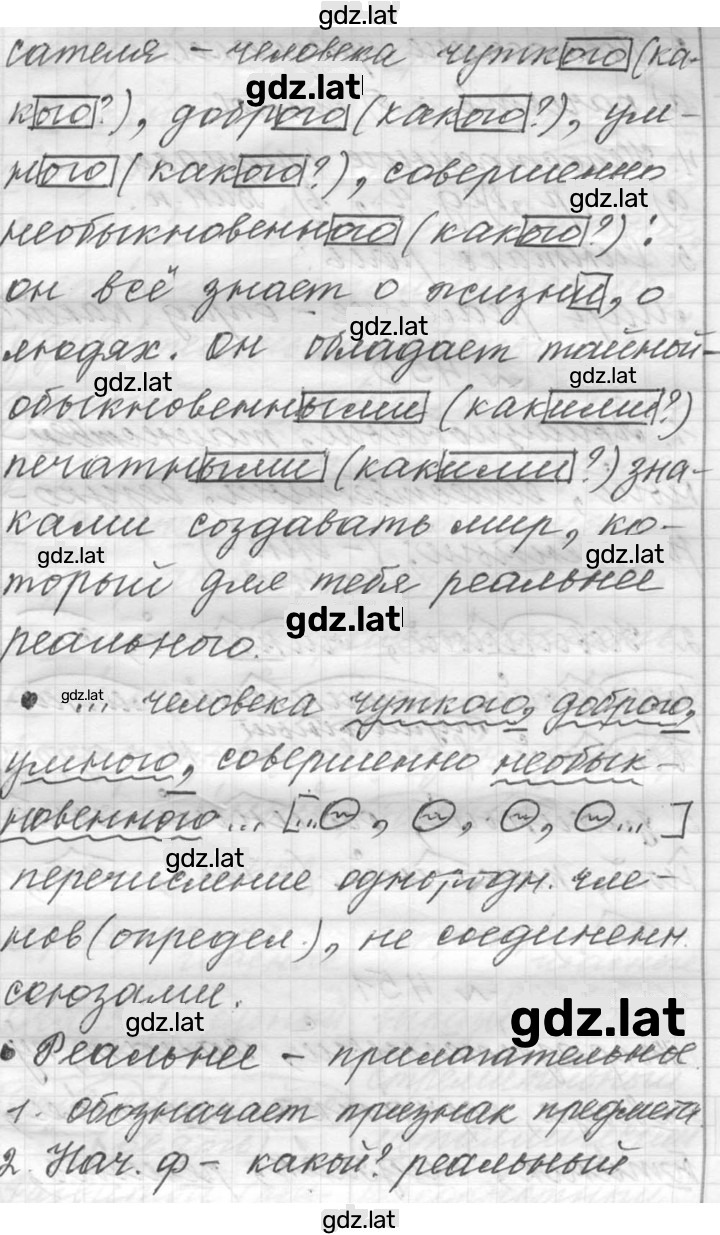 gdz.lat
сателя – человека чуткого (ка-
gdz.lat
кого?), доброго (какого?), ум-
ного (какого?), совершенно
gdz.lat
необыкновенного (какого?):
он всё знает о жизни, о
gdz.lat
людях. Он обладает тайной-
gdz.lat gdz.lat
обыкновенными (какими?)
печатными (какими?) зна-
ками создавать мир, ко-
gdz.lat gdz.lat
торый для тебя реальнее
gdz.lat
реального.
• gdz.lat ... человека чуткого, доброго,
умного, совершенно необык-
новенного... [...~, ~, ~, ~...]
gdz.lat
перечисление однородн. чле-
нов (определ.), не соединенн.
союзами.
gdz.lat gdz.lat
• Реальнее – прилагательное.
1. обозначает признак предмета.
2. Нач. ф – какой? реальный
gdz.lat